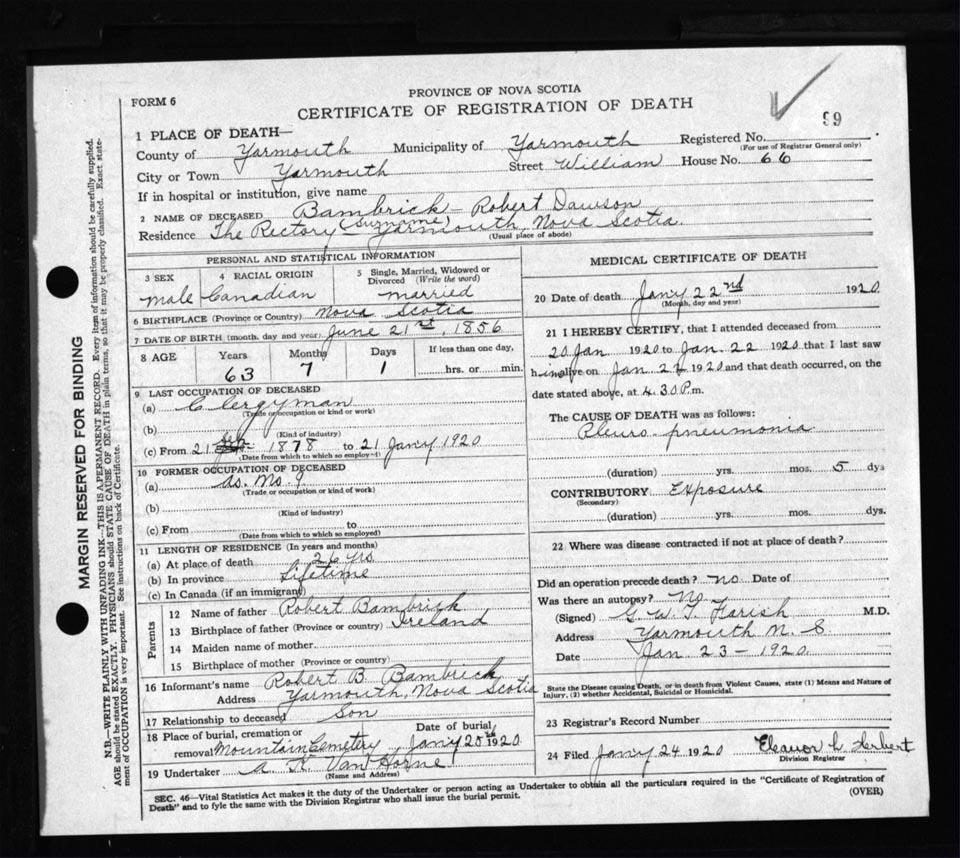 PROVINCE OF NOVA SCOTIA
FORM 6
CERTIFICATE OF REGISTRATION OF DEATH
99
1 PLACE OF DEATH—
County of Yarmouth Municipality of Yarmouth Registered No.
(For use of Registrar General only)
City or Town Yarmouth Street William House No. 66
If in hospital or institution, give name
2 NAME OF DECEASED Bambrick - Robert Dawson
(Surname)
Residence The Rectory Yarmouth, Nova Scotia.
(Usual place of abode)
PERSONAL AND STATISTICAL INFORMATION
3 SEX 4 RACIAL ORIGIN 5 Single, Married, Widowed or Divorced (Write the word)
male Canadian married
6 BIRTHPLACE (Province or Country) Nova Scotia
7 DATE OF BIRTH (month, day and year) June 21st, 1856
8 AGE Years Months Days If less than one day,
63 7 1 hrs. or min.
9 LAST OCCUPATION OF DECEASED
(a) Clergyman
(Trade or occupation or kind of work)
(b)
(Kind of industry)
(c) From 21 1878 to 21 Jany 1920
(Date from which to which so employed)
10 FORMER OCCUPATION OF DECEASED
(a) as No. 9
(Trade or occupation or kind of work)
(b)
(Kind of industry)
(c) From to
(Date from which to which so employed)
11 LENGTH OF RESIDENCE (In years and months)
(a) At place of death 26 yrs
(b) In province Lifetime
(c) In Canada (if an immigrant)
Parents
12 Name of father Robert Bambrick
13 Birthplace of father (Province or country) Ireland
14 Maiden name of mother
15 Birthplace of mother (Province or country)
16 Informant's name Robert B. Bambrick
Address Yarmouth, Nova Scotia
17 Relationship to deceased Son
18 Place of burial, cremation or removal Mountain Cemetery Date of burial Jany 25th 1920
19 Undertaker A. K. Van Horne
(Name and Address)
MEDICAL CERTIFICATE OF DEATH
20 Date of death Jan'y 22nd 1920
(Month, day and year)
21 I HEREBY CERTIFY, that I attended deceased from
20 Jan 1920 to Jan. 22 1920 that I last saw
h im alive on Jan 22 1920 and that death occurred, on the
date stated above, at 4.30 P.m.
The CAUSE OF DEATH was as follows:
Pleuro-pneumonia
(duration) yrs. mos. 5 dys
CONTRIBUTORY Exposure
(Secondary)
(duration) yrs. mos. dys.
22 Where was disease contracted if not at place of death?
Did an operation precede death? No Date of
Was there an autopsy? No
(Signed) G. W. T. Farish M.D.
Address Yarmouth N. S.
Date Jan 23 - 1920.
State the Disease causing Death, or in death from Violent Causes, state (1) Means and Nature of
Injury, (2) whether Accidental, Suicidal or Homicidal.
23 Registrar's Record Number
24 Filed Jan'y 24 1920 Eleanor L. Herbert
Division Registrar
SEC. 46—Vital Statistics Act makes it the duty of the Undertaker or person acting as Undertaker to obtain all the particulars required in the "Certificate of Registration of
Death" and to fyle the same with the Division Registrar who shall issue the burial permit.
(OVER)
MARGIN RESERVED FOR BINDING
N.B.—WRITE PLAINLY WITH UNFADING INK—THIS IS A PERMANENT RECORD. Every item of information should be carefully supplied.
AGE should be stated EXACTLY. PHYSICIANS should STATE CAUSE OF DEATH in plain terms, so that it may be properly classified. Exact state-
ment of OCCUPATION is very important. See instructions on back of Certificate.